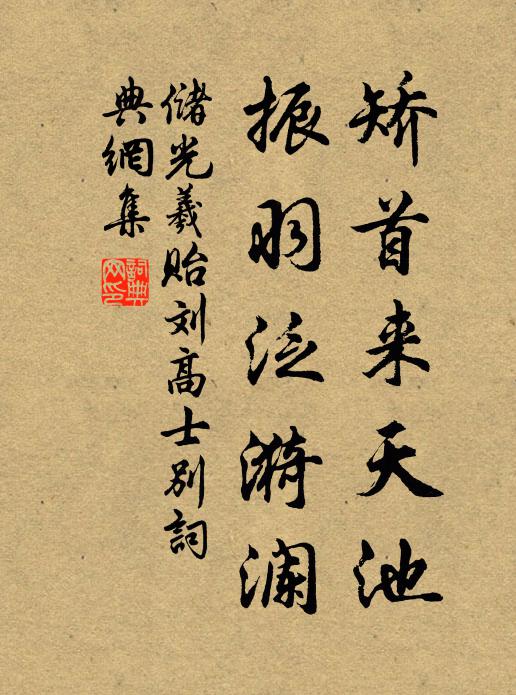 矫首来天池
振羽泛漪澜
储光羲贻刘高士别詞
典網集
詞典网印